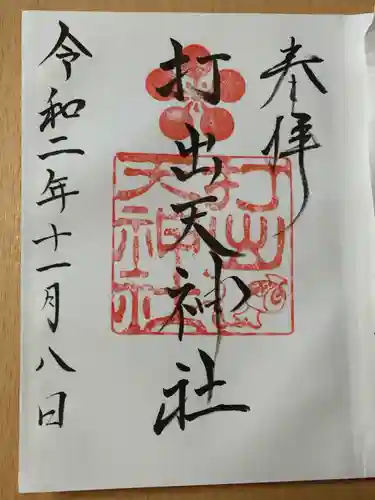 奉拝
打出天神社
令和二年十一月八日
打出
天神社